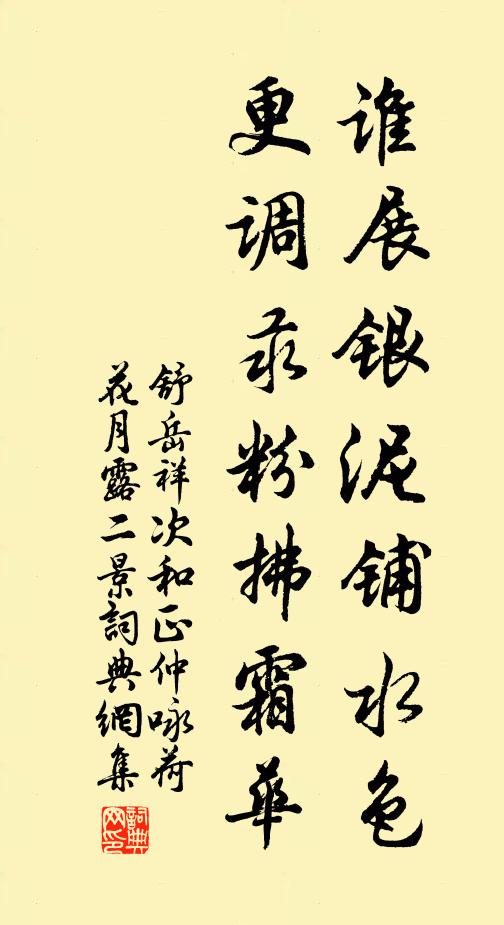 誰展銀泥鋪水色
更調汞粉拂霜華
舒岳祥次和正仲咏荷
花月露二景詞典網集
詞典
网印